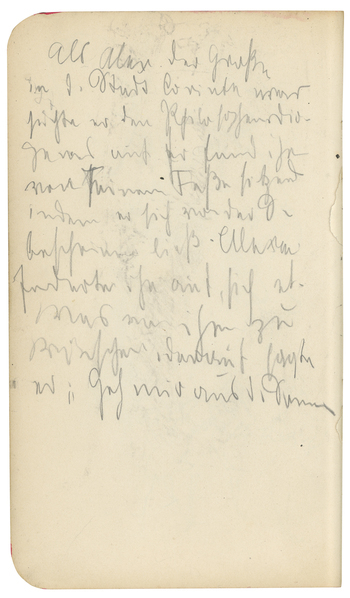 Als Alex. der Große
in d. Stadt Corinth war
suchte er den Philosophen Dio-
genes auf er fand ihn
vor seinem Faße sitzend
indem er sich von der S.
bescheinen ließ. Alexa
forderte ihn auf, sich et-
was von ihm zu
wünschen, darauf sagte
er: Geh mir aus d. Sonne